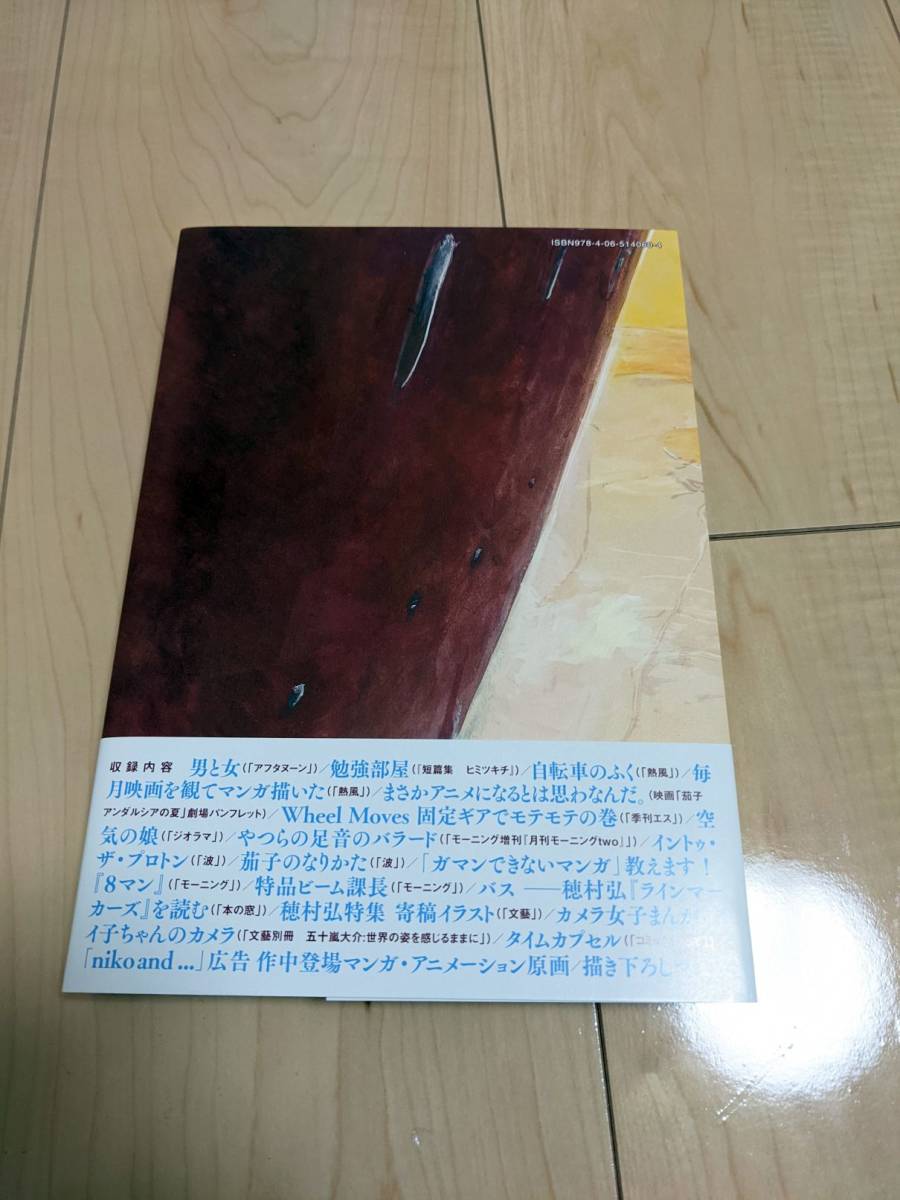 ISBN978-4-06-514060-4
収録内容 男と女(「アフタヌーン」)/勉強部屋(『短篇集 ヒミツキチ』)/自転車のふく(「熱風」)/毎
月映画を観てマンガ描いた(「熱風」)/まさかアニメになるとは思わなんだ。(映画「茄子
アンダルシアの夏」劇場パンフレット)/Wheel Moves 固定ギアでモテモテの巻(「季刊エス」)/空
気の娘(「ジオラマ」)/やつらの足音のバラード(「モーニング増刊『月刊モーニングtwo』」)/イントゥ・
ザ・プロトン(「波」)/茄子のなりかた(「波」)/「ガマンできないマンガ」教えます!
『8マン』(「モーニング」)/特品ビーム課長(「モーニング」)/バス ――穂村弘『ラインマー
カーズ』を読む(「本の窓」)/穂村弘特集 寄稿イラスト(「文藝」)/カメラ女子まんが
イ子ちゃんのカメラ(「文藝別冊 五十嵐大介:世界の姿を感じるままに」)/タイムカプセル(「コミック
「niko and ...」広告 作中登場マンガ・アニメーション原画/描き下ろし